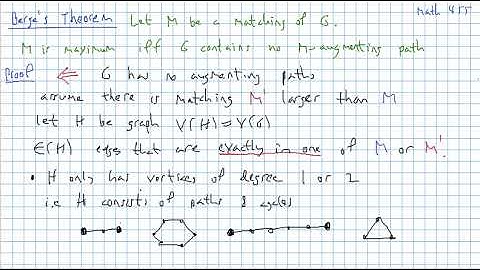 Math 455
Berge's Theorem Let M be a matching of G.
M is maximum iff G contains no M-augmenting path
Proof ⇐ G has no augmenting paths
assume there is matching M' larger than M
Let H be graph V(H)=V(G)
E(H) edges that are exactly in one of M or M'.
• H only has vertices of degree 1 or 2
i.e H consists of paths & cycles